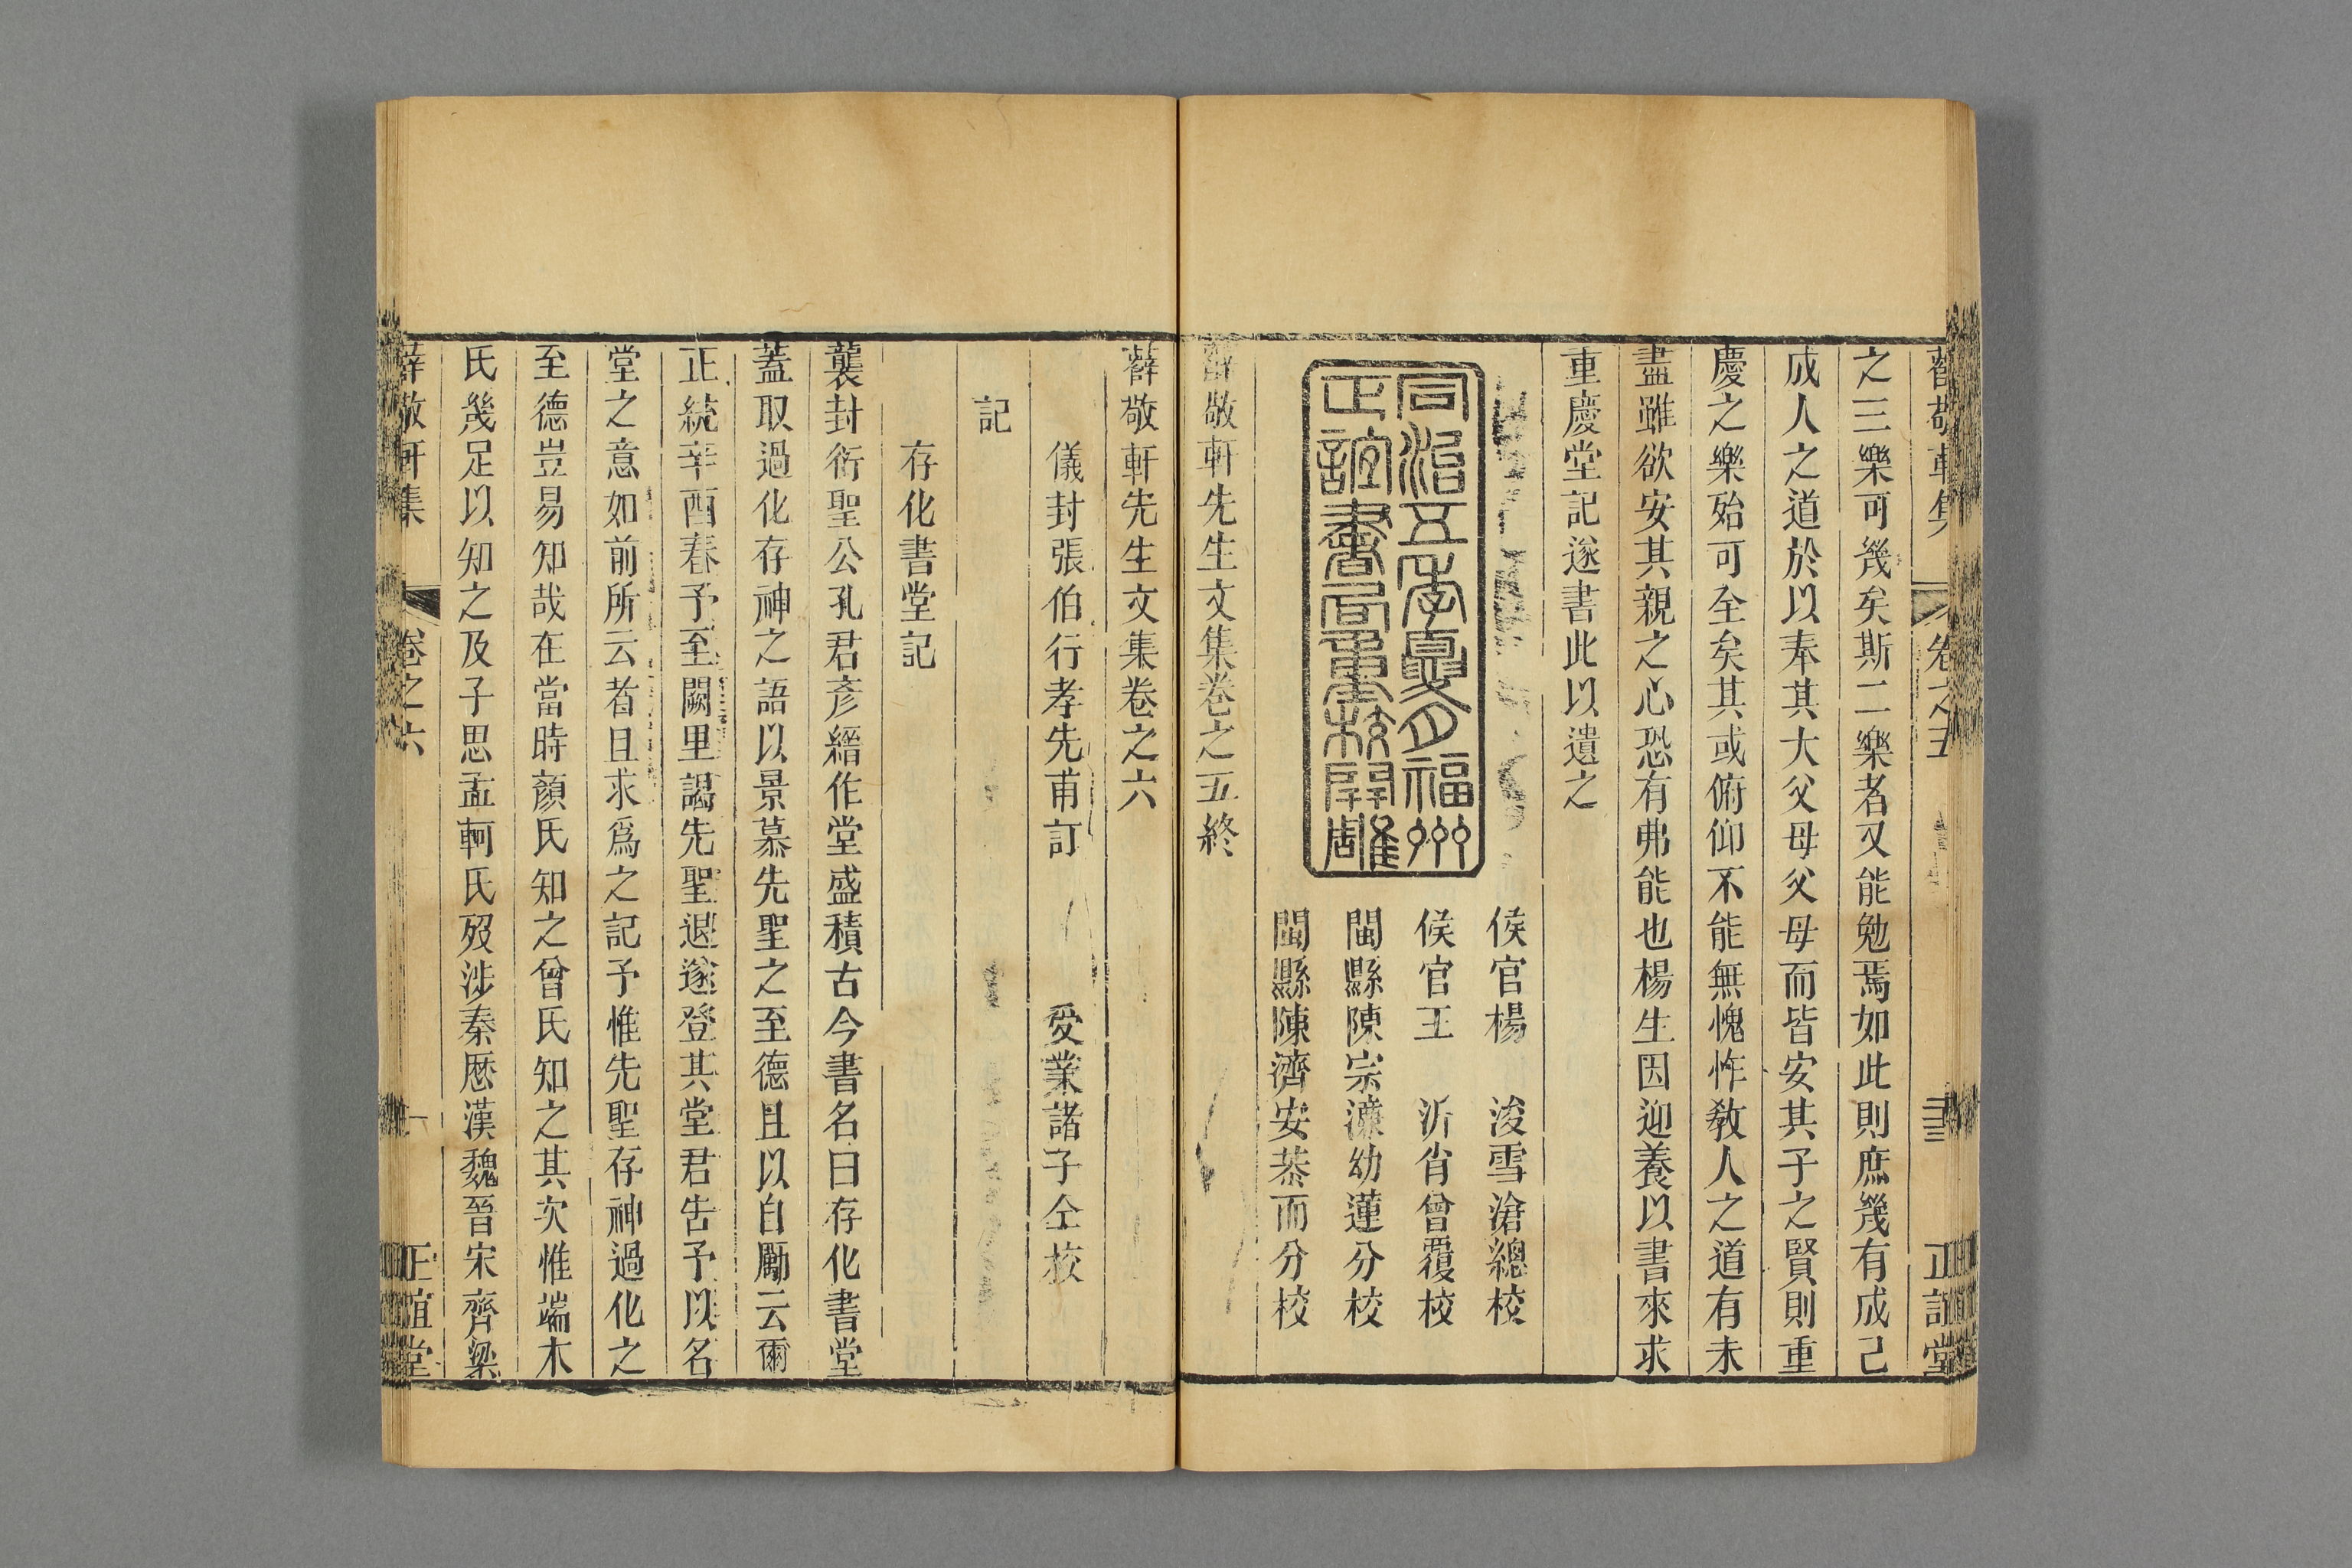 薛敬軒集 卷之五 三 正誼堂
之三樂可幾矣斯二樂者又能勉焉如此則庶幾有成己
成人之道於以奉其大父母父母而皆安其子之賢則重
慶之樂殆可全矣其或俯仰不能無愧怍教人之道有未
盡雖欲安其親之心恐有弗能也楊生因迎養以書來求
重慶堂記遂書此以遺之
同治五年夏月福州
正誼書局重校開雕
侯官楊 浚雪滄總校
侯官王 沂肖曾覆校
閩縣陳宗濂幼蓮分校
閩縣陳濟安恭而分校
薛敬軒先生文集卷之五終
薛敬軒先生文集卷之六
儀封張伯行孝先甫訂 受業諸子仝校
記
存化書堂記
襲封衍聖公孔君彥縉作堂盛積古今書名曰存化書堂
蓋取過化存神之語以景慕先聖之至德且以自勵云爾
正統辛酉春予至闕里謁先聖退遂登其堂君告予以名
堂之意如前所云者且求爲之記予惟先聖存神過化之
至德豈易知哉在當時顏氏知之曾氏知之其次惟端木
氏幾足以知之及子思孟軻氏歿涉秦歷漢魏晉宋齊梁
薛敬軒集 卷之六 一 正誼堂